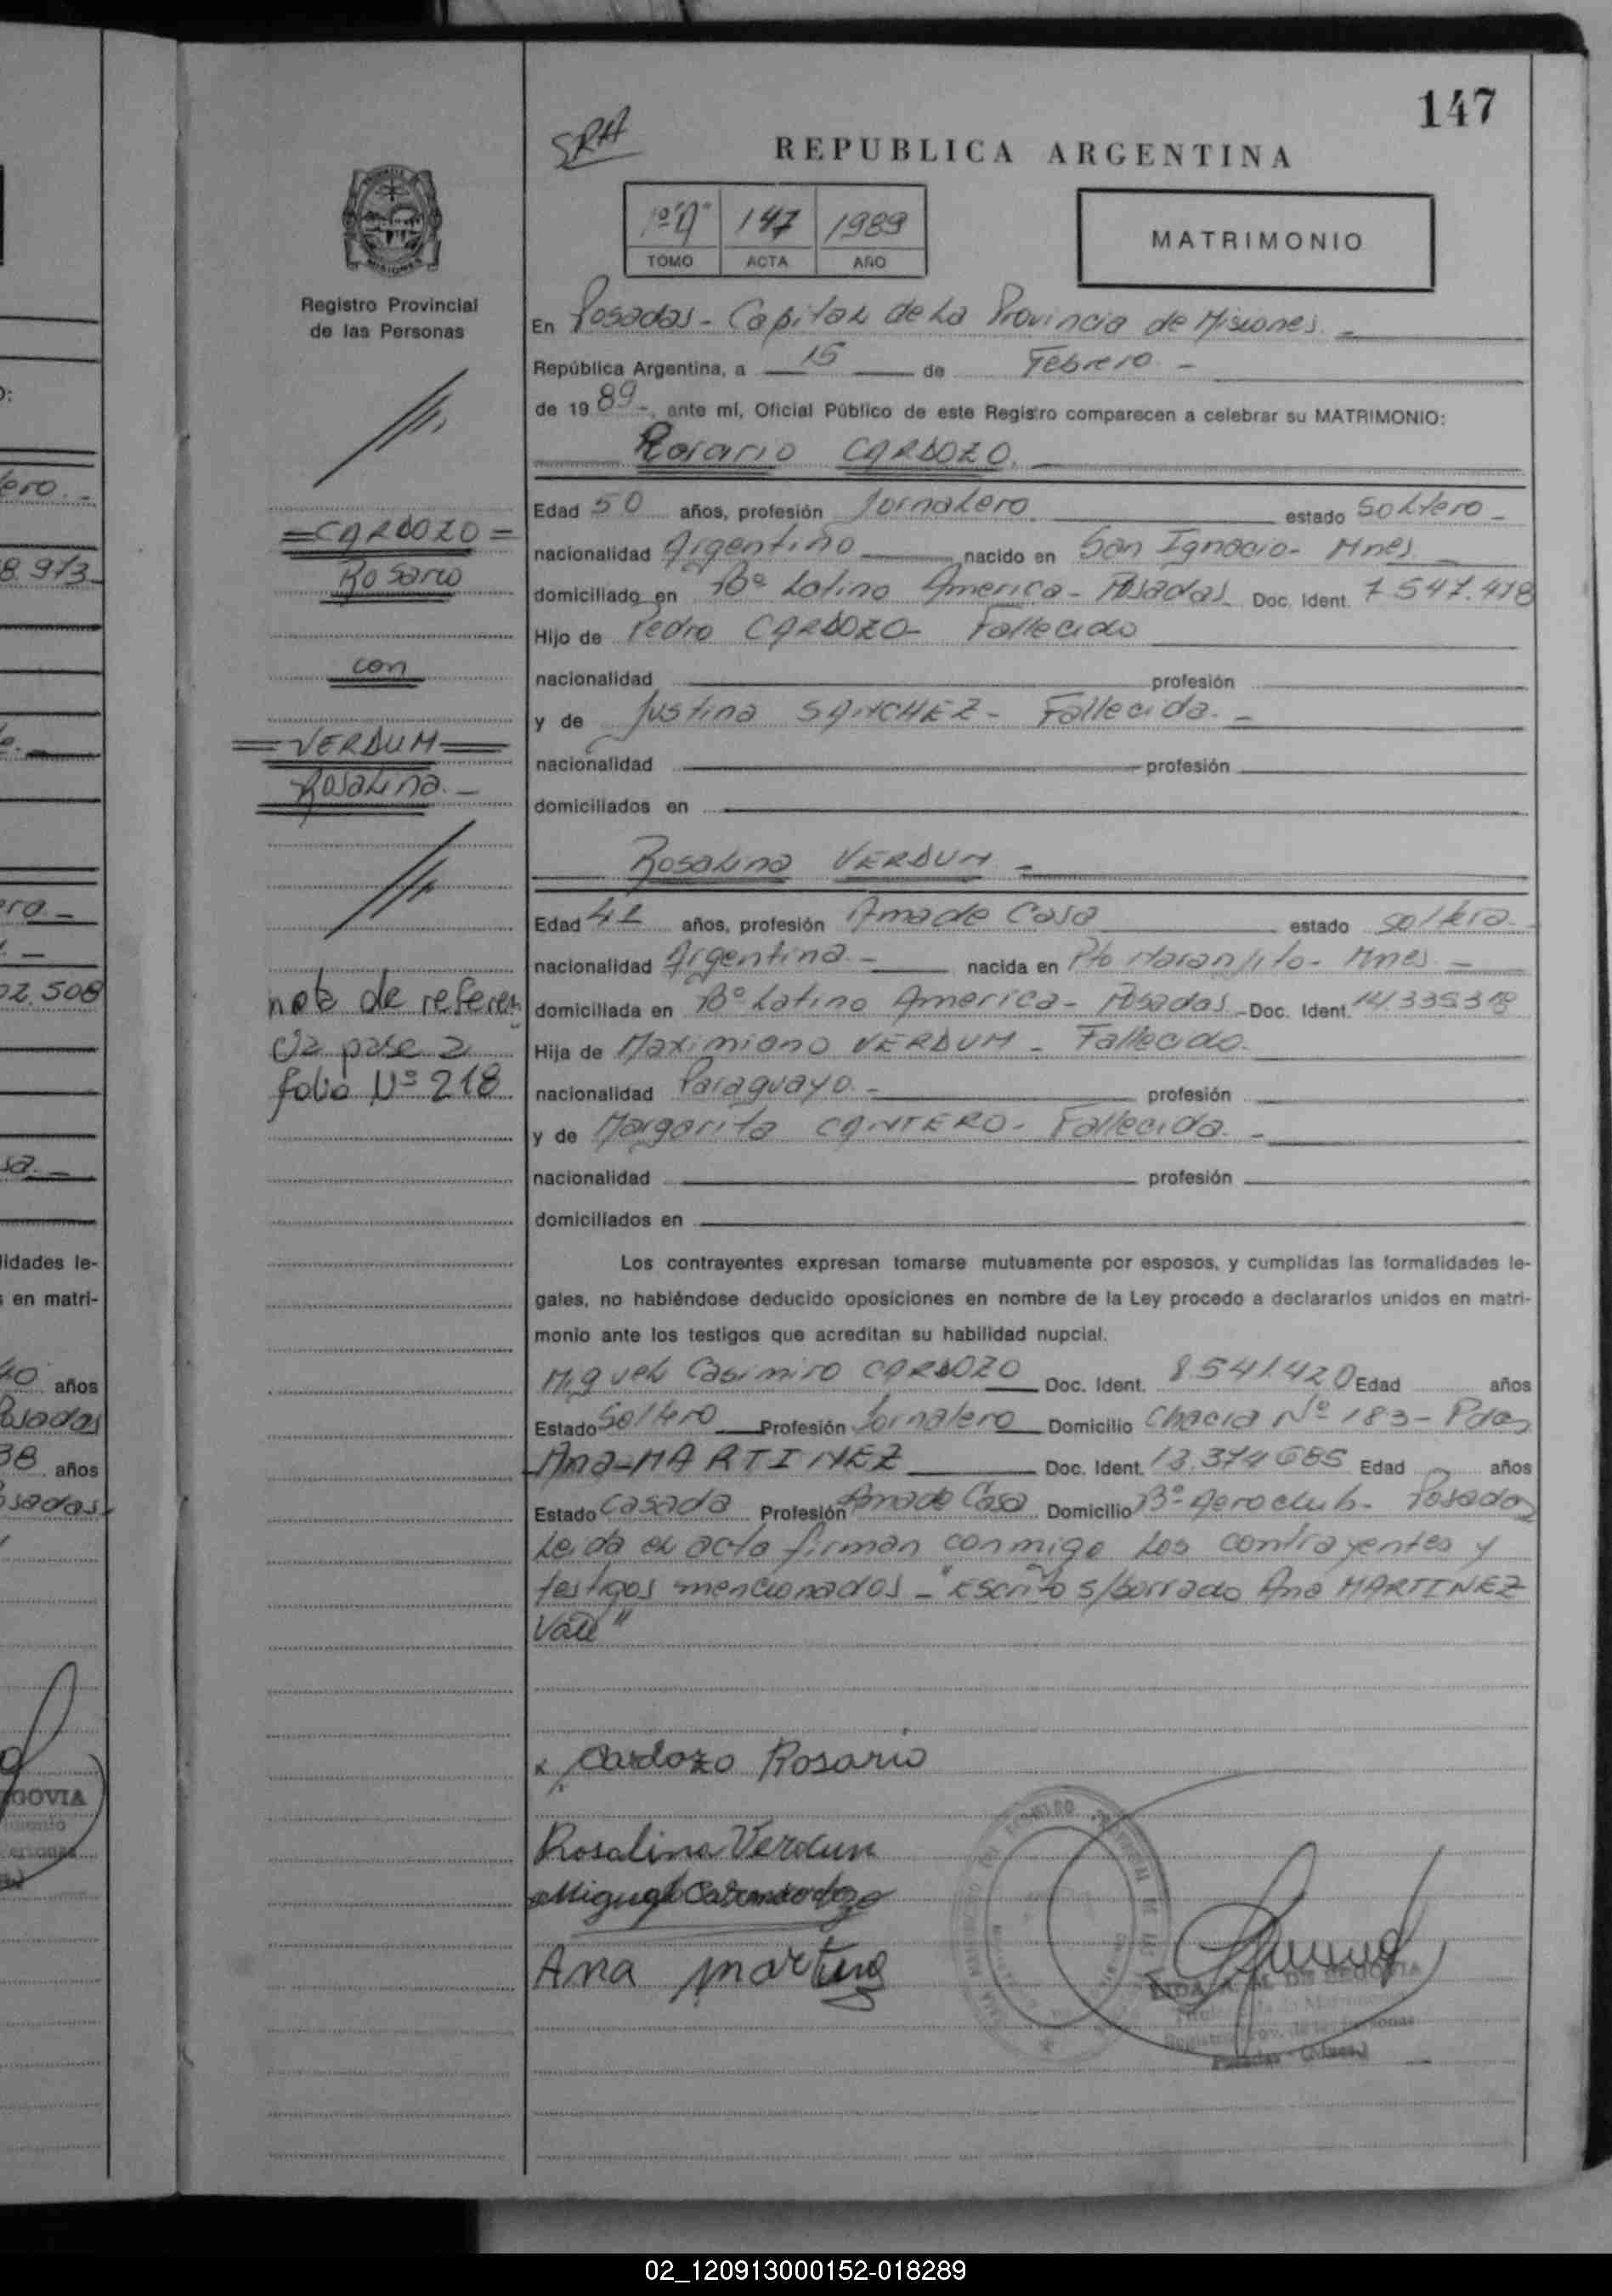 147
SRA
REPUBLICA ARGENTINA
1º "A" 147 1989
TOMO ACTA AÑO
MATRIMONIO
MISIONES
Registro Provincial
de las Personas
En Posadas - Capital de La Provincia de Misiones. -
República Argentina, a 15 de Febrero -
de 19 89 -, ante mí, Oficial Público de este Registro comparecen a celebrar su MATRIMONIO:
Rosario CARDOZO.
Edad 50 años, profesión Jornalero estado Soltero -
nacionalidad Argentino nacido en San Ignacio - Mnes -
domiciliado en Bº Latino America - Posadas Doc. Ident. 7.547.418
Hijo de Pedro CARDOZO - Fallecido
nacionalidad profesión
y de Justina SANCHEZ - Fallecida. -
nacionalidad profesión
domiciliados en
= CARDOZO =
Rosario
con
= VERDUM =
Rosalina. -
Rosalina VERDUM -
Edad 42 años, profesión Ama de Casa estado soltera -
nacionalidad Argentina - nacida en Pto Naranjito - Mnes -
domiciliada en Bº Latino America - Posadas - Doc. Ident. 14.335.318
Hija de Maximiano VERDUM - Fallecido.
nacionalidad Paraguayo - profesión
y de Margarita CANTERO - Fallecida. -
nacionalidad profesión
domiciliados en
nota de referen
cia pase a
folio Nº 218
Los contrayentes expresan tomarse mutuamente por esposos, y cumplidas las formalidades le-
gales, no habiéndose deducido oposiciones en nombre de la Ley procedo a declararlos unidos en matri-
monio ante los testigos que acreditan su habilidad nupcial.
Miguel Casimiro CARDOZO Doc. Ident. 8.541.420 Edad años
Estado Soltero Profesión Jornalero Domicilio Chacra Nº 183 - Pdas
Ana - MARTINEZ Doc. Ident. 13.374.685 Edad años
Estado Casada Profesión Ama de Casa Domicilio Bº - Aeroclub - Posadas
Leida el acta firman conmigo Los contrayentes y
testigos mencionados - "Escrito s/borrado Ana MARTINEZ
Vale"
x Cardozo Rosario
Rosalina Verdun
Miguel
Ana martinez
DE SEGOVIA
Registro Prov. de las Personas
Posadas - (Mnes.)
ero. -
8.973
ra -
02.508
sa. -
lidades le-
en matri-
40 años
Posadas
38 años
sadas
GOVIA
02_120913000152-018289